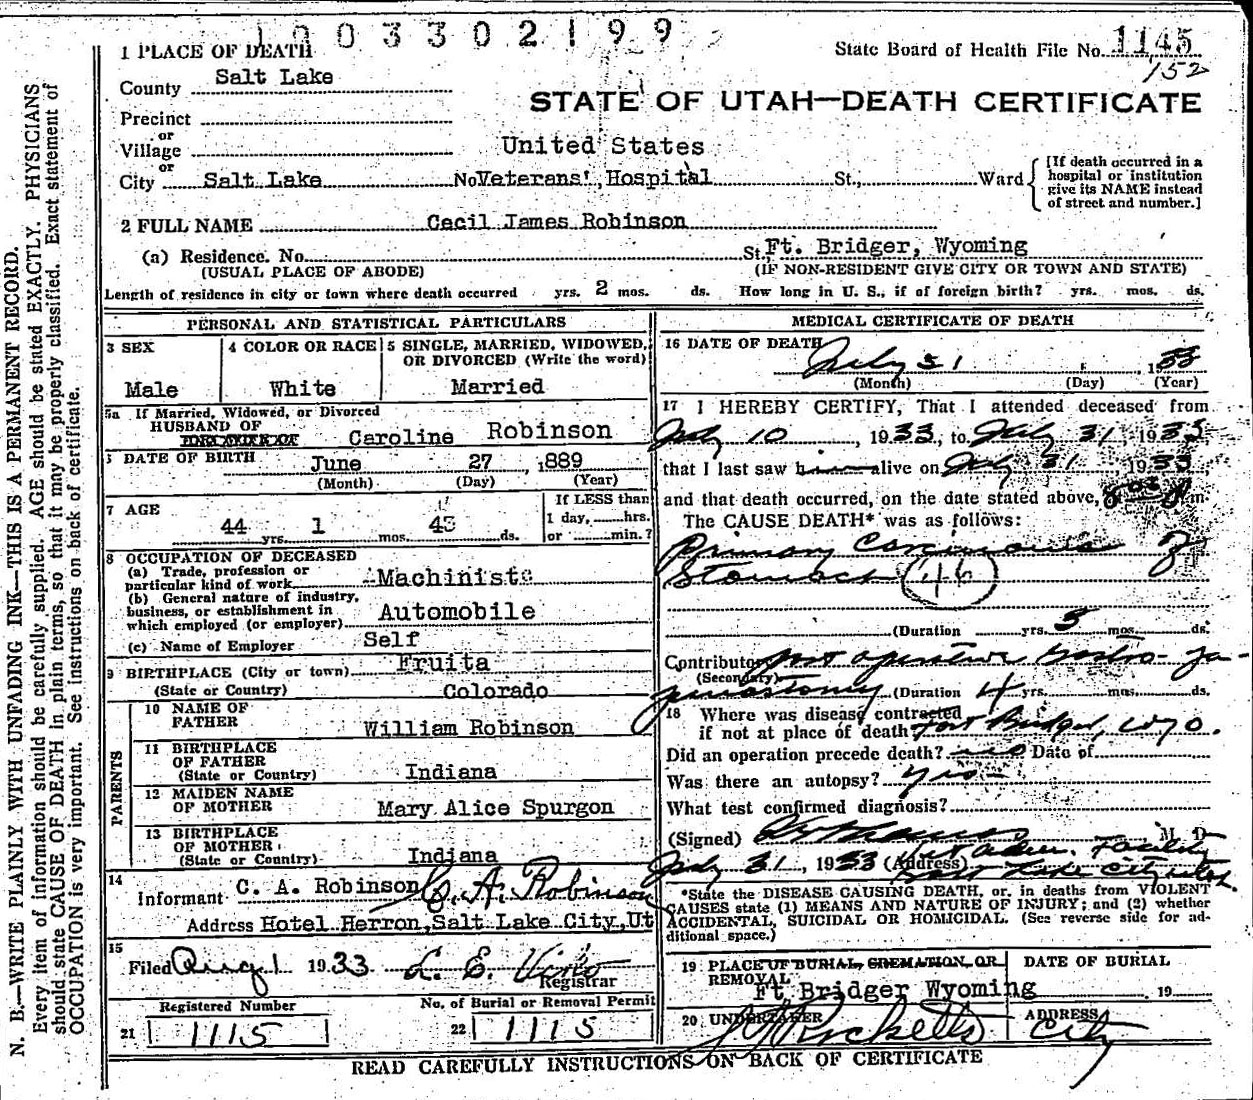 1003302199
1 PLACE OF DEATH
State Board of Health File No. 1145
152
County Salt Lake
STATE OF UTAH—DEATH CERTIFICATE
Precinct
or
Village
United States
or
City Salt Lake No Veterans' Hospital St., Ward
[If death occurred in a hospital or institution give its NAME instead of street and number.]
2 FULL NAME Cecil James Robinson
(a) Residence. No. St. Ft. Bridger, Wyoming
(USUAL PLACE OF ABODE) (IF NON-RESIDENT GIVE CITY OR TOWN AND STATE)
Length of residence in city or town where death occurred yrs. 2 mos. ds. How long in U. S., if of foreign birth? yrs. mos. ds.
PERSONAL AND STATISTICAL PARTICULARS
3 SEX
Male
4 COLOR OR RACE
White
5 SINGLE, MARRIED, WIDOWED, OR DIVORCED (Write the word)
Married
5a If Married, Widowed, or Divorced
HUSBAND OF
Caroline Robinson
DATE OF BIRTH June 27, 1889
(Month) (Day) (Year)
7 AGE
44 yrs. 1 mos. ds.
If LESS than
1 day, hrs.
or min.?
8 OCCUPATION OF DECEASED
(a) Trade, profession or
particular kind of work Machinist
(b) General nature of industry,
business, or establishment in
which employed (or employer) Automobile
(c) Name of Employer Self
9 BIRTHPLACE (City or town) Fruita
(State or Country) Colorado
PARENTS
10 NAME OF
FATHER William Robinson
11 BIRTHPLACE
OF FATHER
(State or Country) Indiana
12 MAIDEN NAME
OF MOTHER Mary Alice Spurgon
13 BIRTHPLACE
OF MOTHER
(State or Country) Indiana
14
Informant C. A. Robinson C. A. Robinson
Address Hotel Herron, Salt Lake City, Ut
15
Filed Aug 1 1933 L. E.
Registrar
Registered Number
21 1115
No. of Burial or Removal Permit
22 1115
MEDICAL CERTIFICATE OF DEATH
16 DATE OF DEATH
July 31, 1933
(Month) (Day) (Year)
17 I HEREBY CERTIFY, That I attended deceased from
July 10, 1933, to July 31 1933
that I last saw him alive on July 31 1933
and that death occurred, on the date stated above, m.
The CAUSE DEATH* was as follows:
Primary Carcinoma of
Stomach 46
(Duration yrs. mos. ds.
Contributory post operative Gastro-je-
(Secondary)
junostomy (Duration 4 yrs. mos. ds.
18 Where was disease contracted
if not at place of death Fort Bridger, Wyo.
Did an operation precede death? no Date of
Was there an autopsy? yes
What test confirmed diagnosis?
(Signed) M. D.
July 31, 1933 (Address) Vet Adm. Facility
Salt Lake City Utah.
*State the DISEASE CAUSING DEATH, or, in deaths from VIOLENT
CAUSES state (1) MEANS AND NATURE OF INJURY; and (2) whether
ACCIDENTAL, SUICIDAL OR HOMICIDAL. (See reverse side for ad-
ditional space.)
19 PLACE OF BURIAL, CREMATION, OR
REMOVAL
Ft Bridger Wyoming
DATE OF BURIAL
19
20 UNDERTAKER
Ricketts
ADDRESS
City
READ CAREFULLY INSTRUCTIONS ON BACK OF CERTIFICATE
N. B.—WRITE PLAINLY WITH UNFADING INK—THIS IS A PERMANENT RECORD.
Every item of information should be carefully supplied. AGE should be stated EXACTLY. PHYSICIANS
should state CAUSE OF DEATH in plain terms, so that it may be properly classified. Exact statement of
OCCUPATION is very important. See instructions on back of certificate.